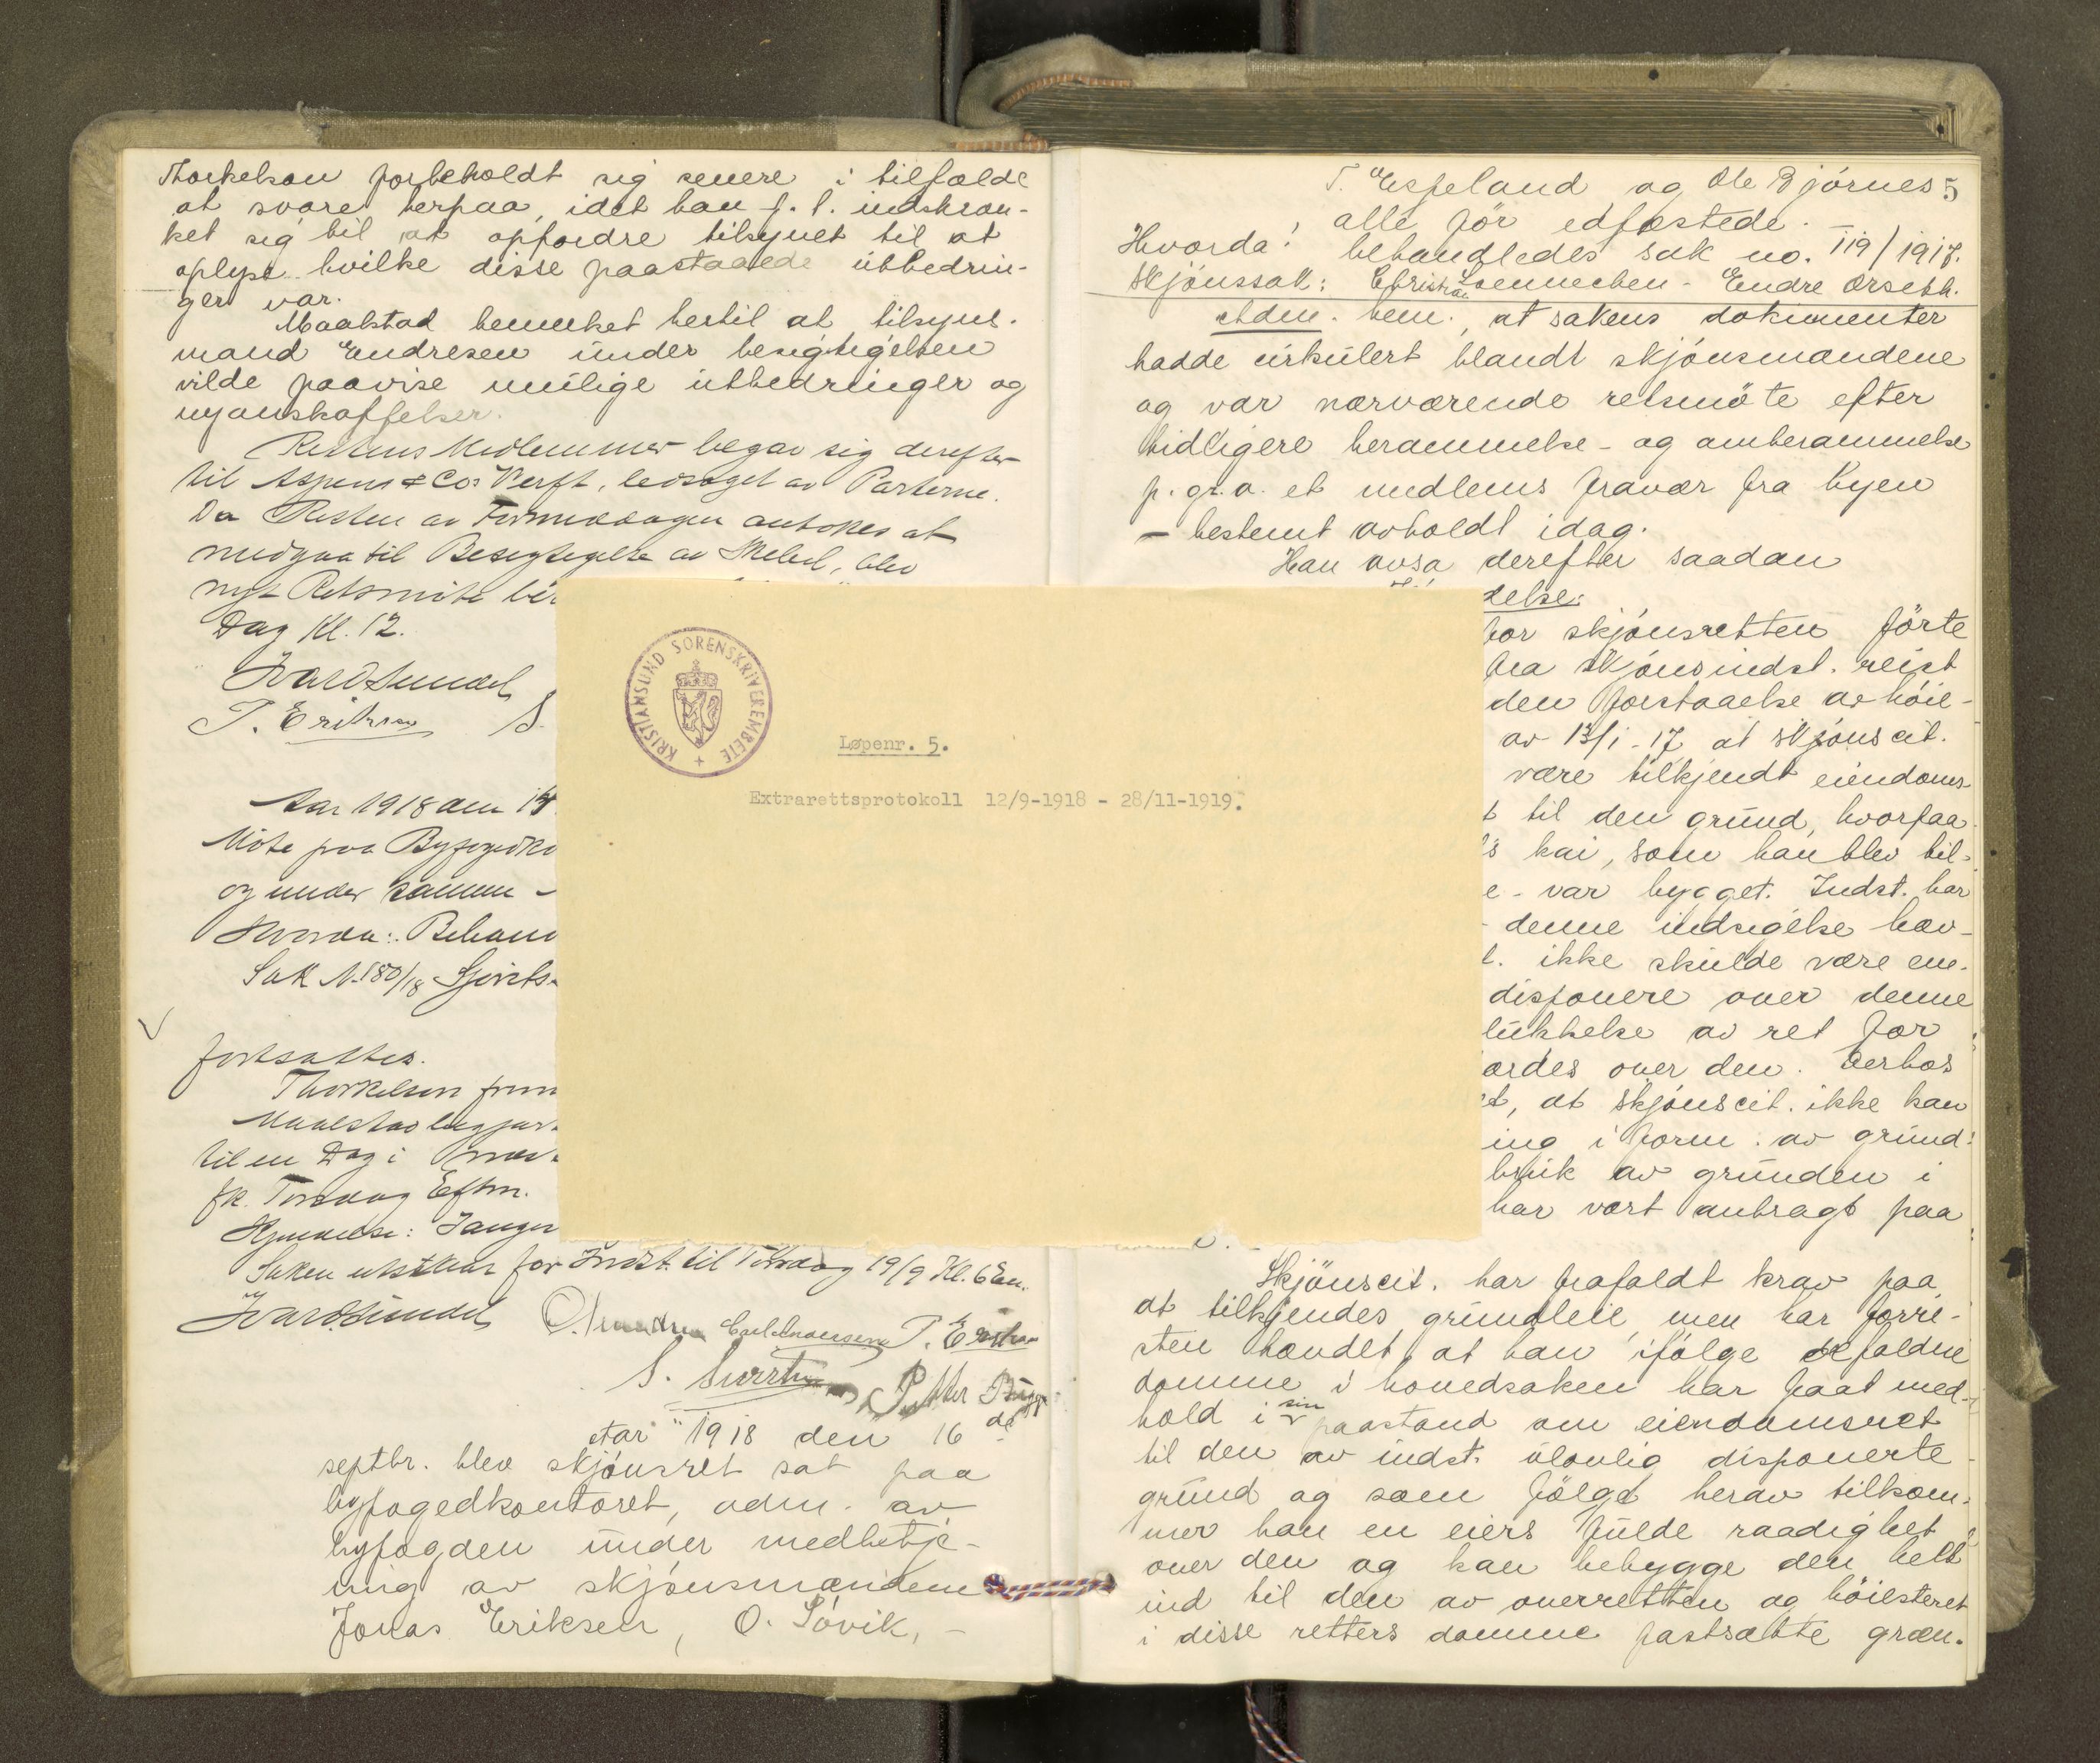 Thorkelsen forbeholdt sig senere i tilfælde
at svare herpaa, idet han f. t. indskræn-
ket sig til at opfordre tilsynet til at
oplyse hvilke disse paastaaede utbedrin-
ger var.
Maalstad bemerket hertil at tilsyns-
mand Endresen under besigtigelsen
vilde paavise mulige utbedringer og
nyanskaffelser.
Rettens Medlemmer begav sig derefter
til Aspens & Co.s Verft, ledsaget av Parterne.
Da Resten av Formiddagen antokes at
medgaa til Besigtigelse av Skibet, blev
nyt Retsmøte
Dag Kl. 12.
T. Eriksen S.
Aar 1918 den 14
Møte paa Byfogedko
og under samme
Hvorda: Behand
Sak N. 180/18 Sjørets-
fortsattes.
Thorkelsen frem
Maalstad
til en Dag i
fk. Torsdag Eftm.
Kjendelse:
Saken utsættes for Indst. til Torsdag 19/9 Kl. 6 Em.
T. Eriksen
S. Petter
Aar 1918 den 16de
septbr. blev skjønsret sat paa
byfogedkontoret, adm. av
byfogden under medbetje-
ning av skjønsmændene
Jonas Eriksen, O. Søvik, -
KRISTIANSUND SORENSKRIVEREMBETE
Løpenr. 5.
Extrarettsprotokoll 12/9-1918 - 28/11-1919.
T. Espeland og Ole Bjørnes 5
alle før edfæstede. -
Hvorda! behandledes sak no. 119/1917.
Skjønssak: Christian Loennechen - Endre Ørseth.
Adm. bem., at sakens dokumenter
hadde cirkulert blandt skjønsmændene
og var nærværende retsmøte efter
tidligere berammelse - og omberammelse
p. gr. a. et medlems fravær fra byen
- bestemt avholdt idag.
Han avsa derefter saadan
delse:
for skjønsretten førte
fra skjønsindst. reist
den forstaaelse av høie-
av 13/1-17 at skjønscit.
være tilkjendt eiendoms-
t til den grund, hvorpaa
's kai, som han blev til-
e - var bygget. Indst. har
- denne indsigelse hæv-
t. ikke skulde være ene-
disponere over denne
lukkelse av ret for
ordes over den. Derhos
et, at skjønscit. ikke kan
ing i form av grund-
bruk av grunden i
har vært antragt paa
Skjønscit. har frafaldt krav paa
at tilkjendes grundleie men har forre-
sten hævdet, at han ifølge de faldne
domme i hovedsaken har faat med-
hold i sin paastand om eiendomsret
til den av indst. ulovlig disponerte
grund og som følge herav tilkom-
mer han en eiers fulde raadighet
over den og kan bebygge den helt
ind til den av overretten og høiesteret
i disse retters domme fastsatte græn-